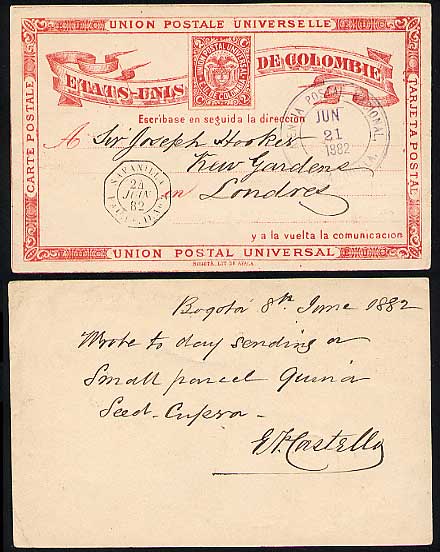 UNION POSTALE UNIVERSELLE
CARTE POSTALE
ETATS-UNIS
DE COLOMBIE
2
UNION POSTAL UNIVERSAL
Escríbase en seguida la direccion
A Sir Joseph Hooker
Kew Gardens
en Londres
POSTAL
JUN
21
1882
SAVANILLA
24
JUIN
82
TARJETA POSTAL
y a la vuelta la comunicacion
UNION POSTAL UNIVERSAL
BOGOTÁ. LIT DE AYALA
Bogotá 8th June 1882
Wrote to day sending a
Small parcel Quina
Seed - Cuprea -